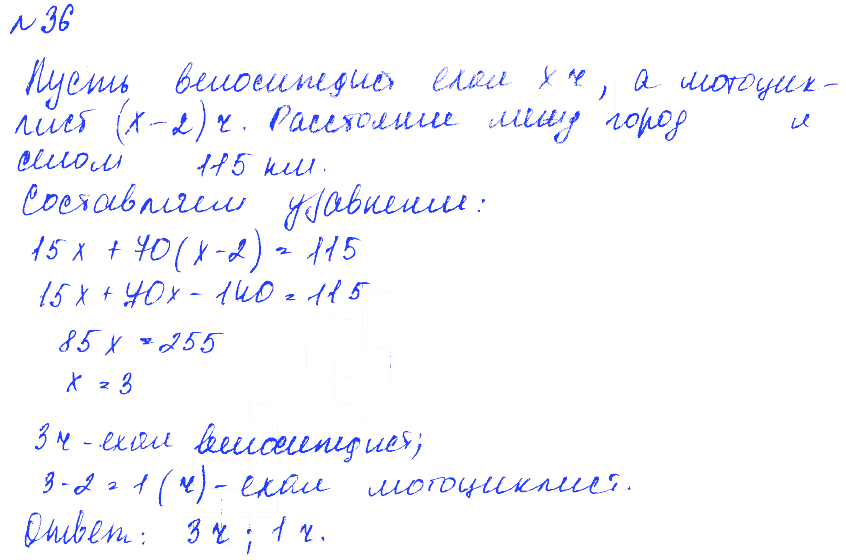 № 36
Пусть велосипедист ехал x ч, а мотоцик-
лист (x-2) ч. Расстояние между город и
селом 115 км.
Составляем уравнение:
15x + 70(x-2) = 115
15x + 70x - 140 = 115
85x = 255
x = 3
3 ч - ехал велосипедист;
3-2 = 1 (ч) - ехал мотоциклист.
Ответ: 3 ч ; 1 ч.